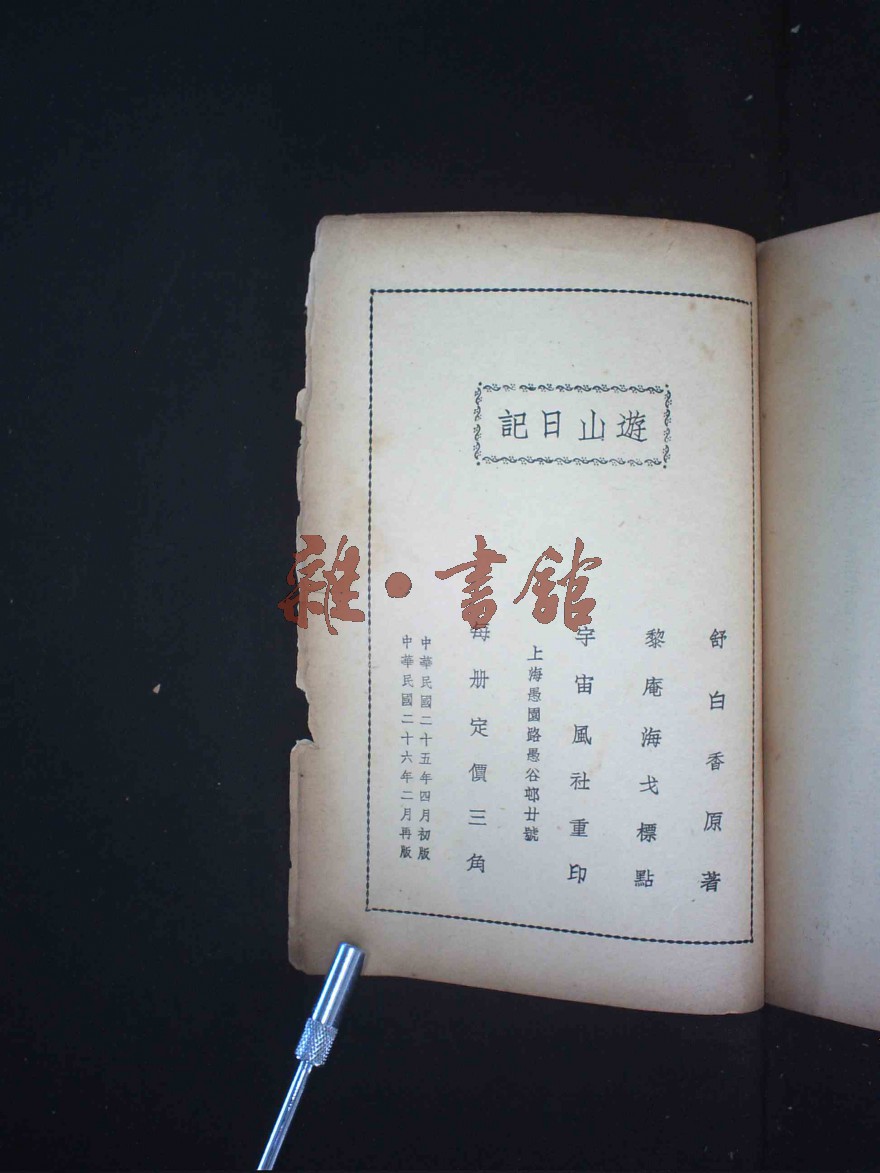 遊山日記
舒白香原著
黎庵海戈標點
宇宙風社重印
上海愚園路愚谷邨廿號
每册定價三角
中華民國二十五年四月初版
中華民國二十六年二月再版
雜·書館